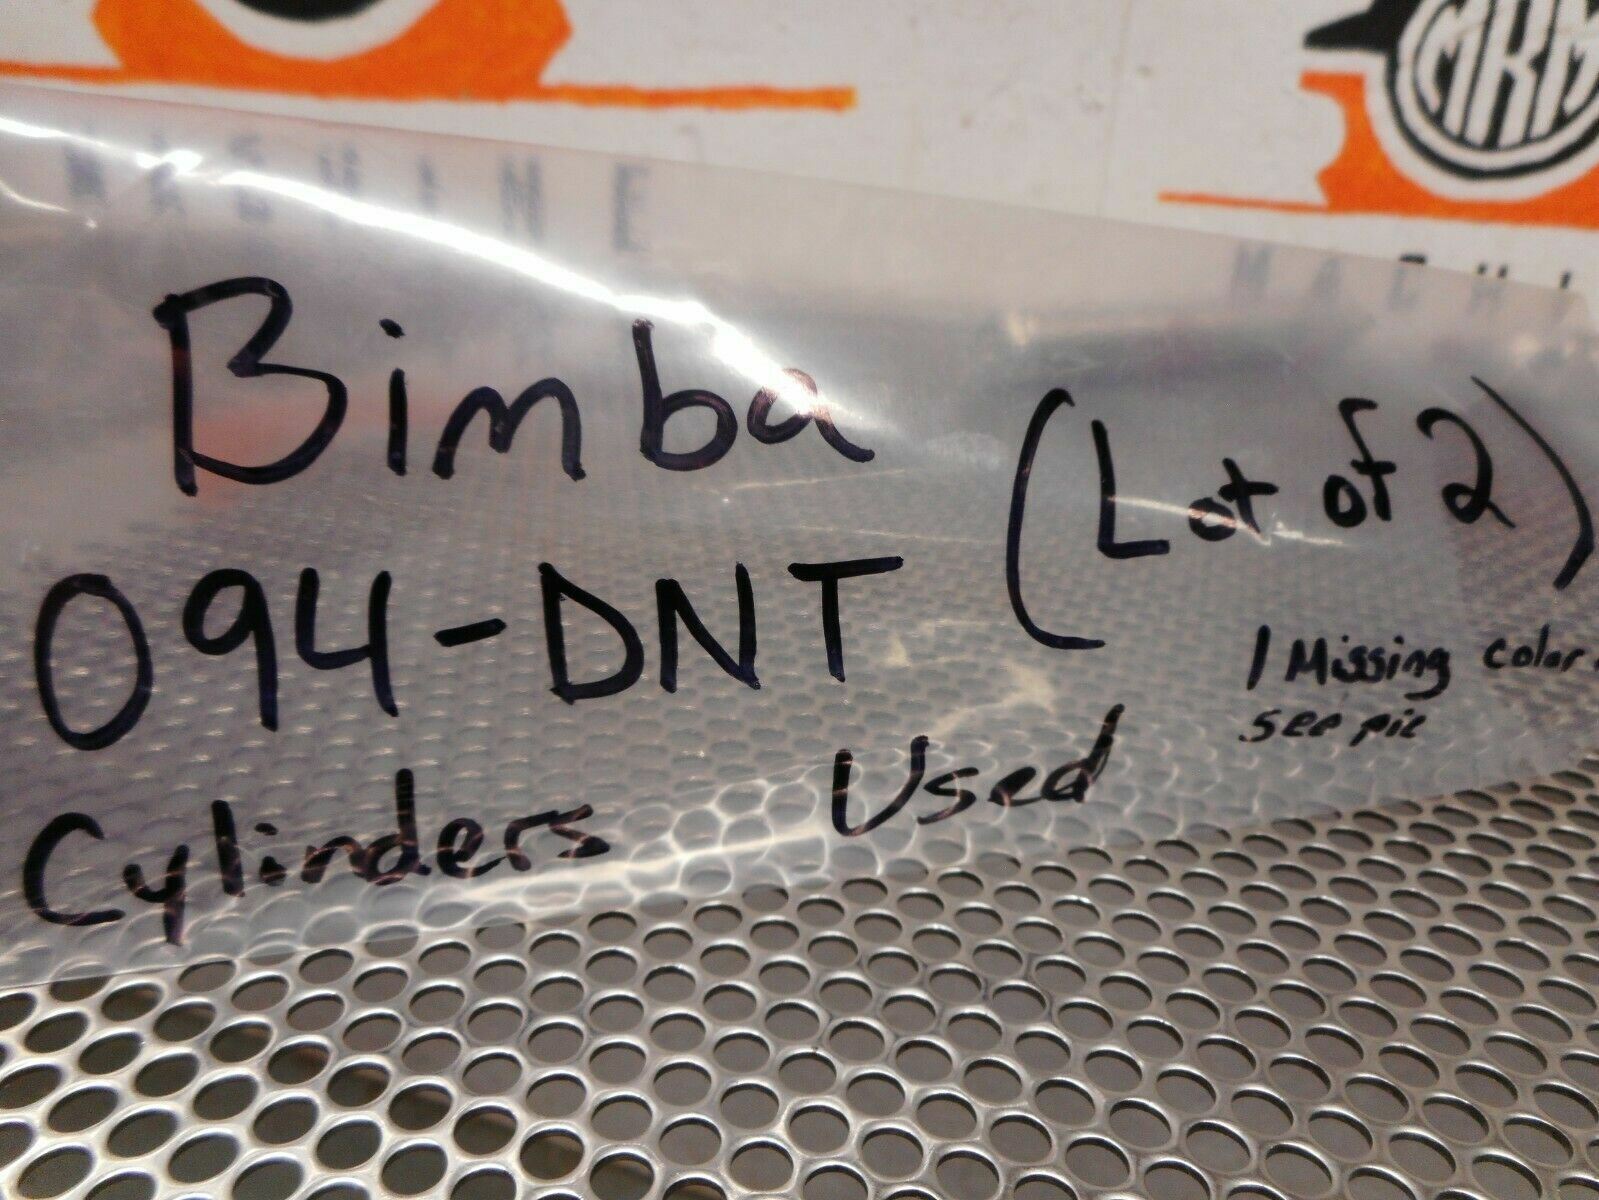 MKM
MACHINE
MACHI
Bimba
(Lot of 2)
094-DNT
1 Missing color.
see pic
Cylinders Used